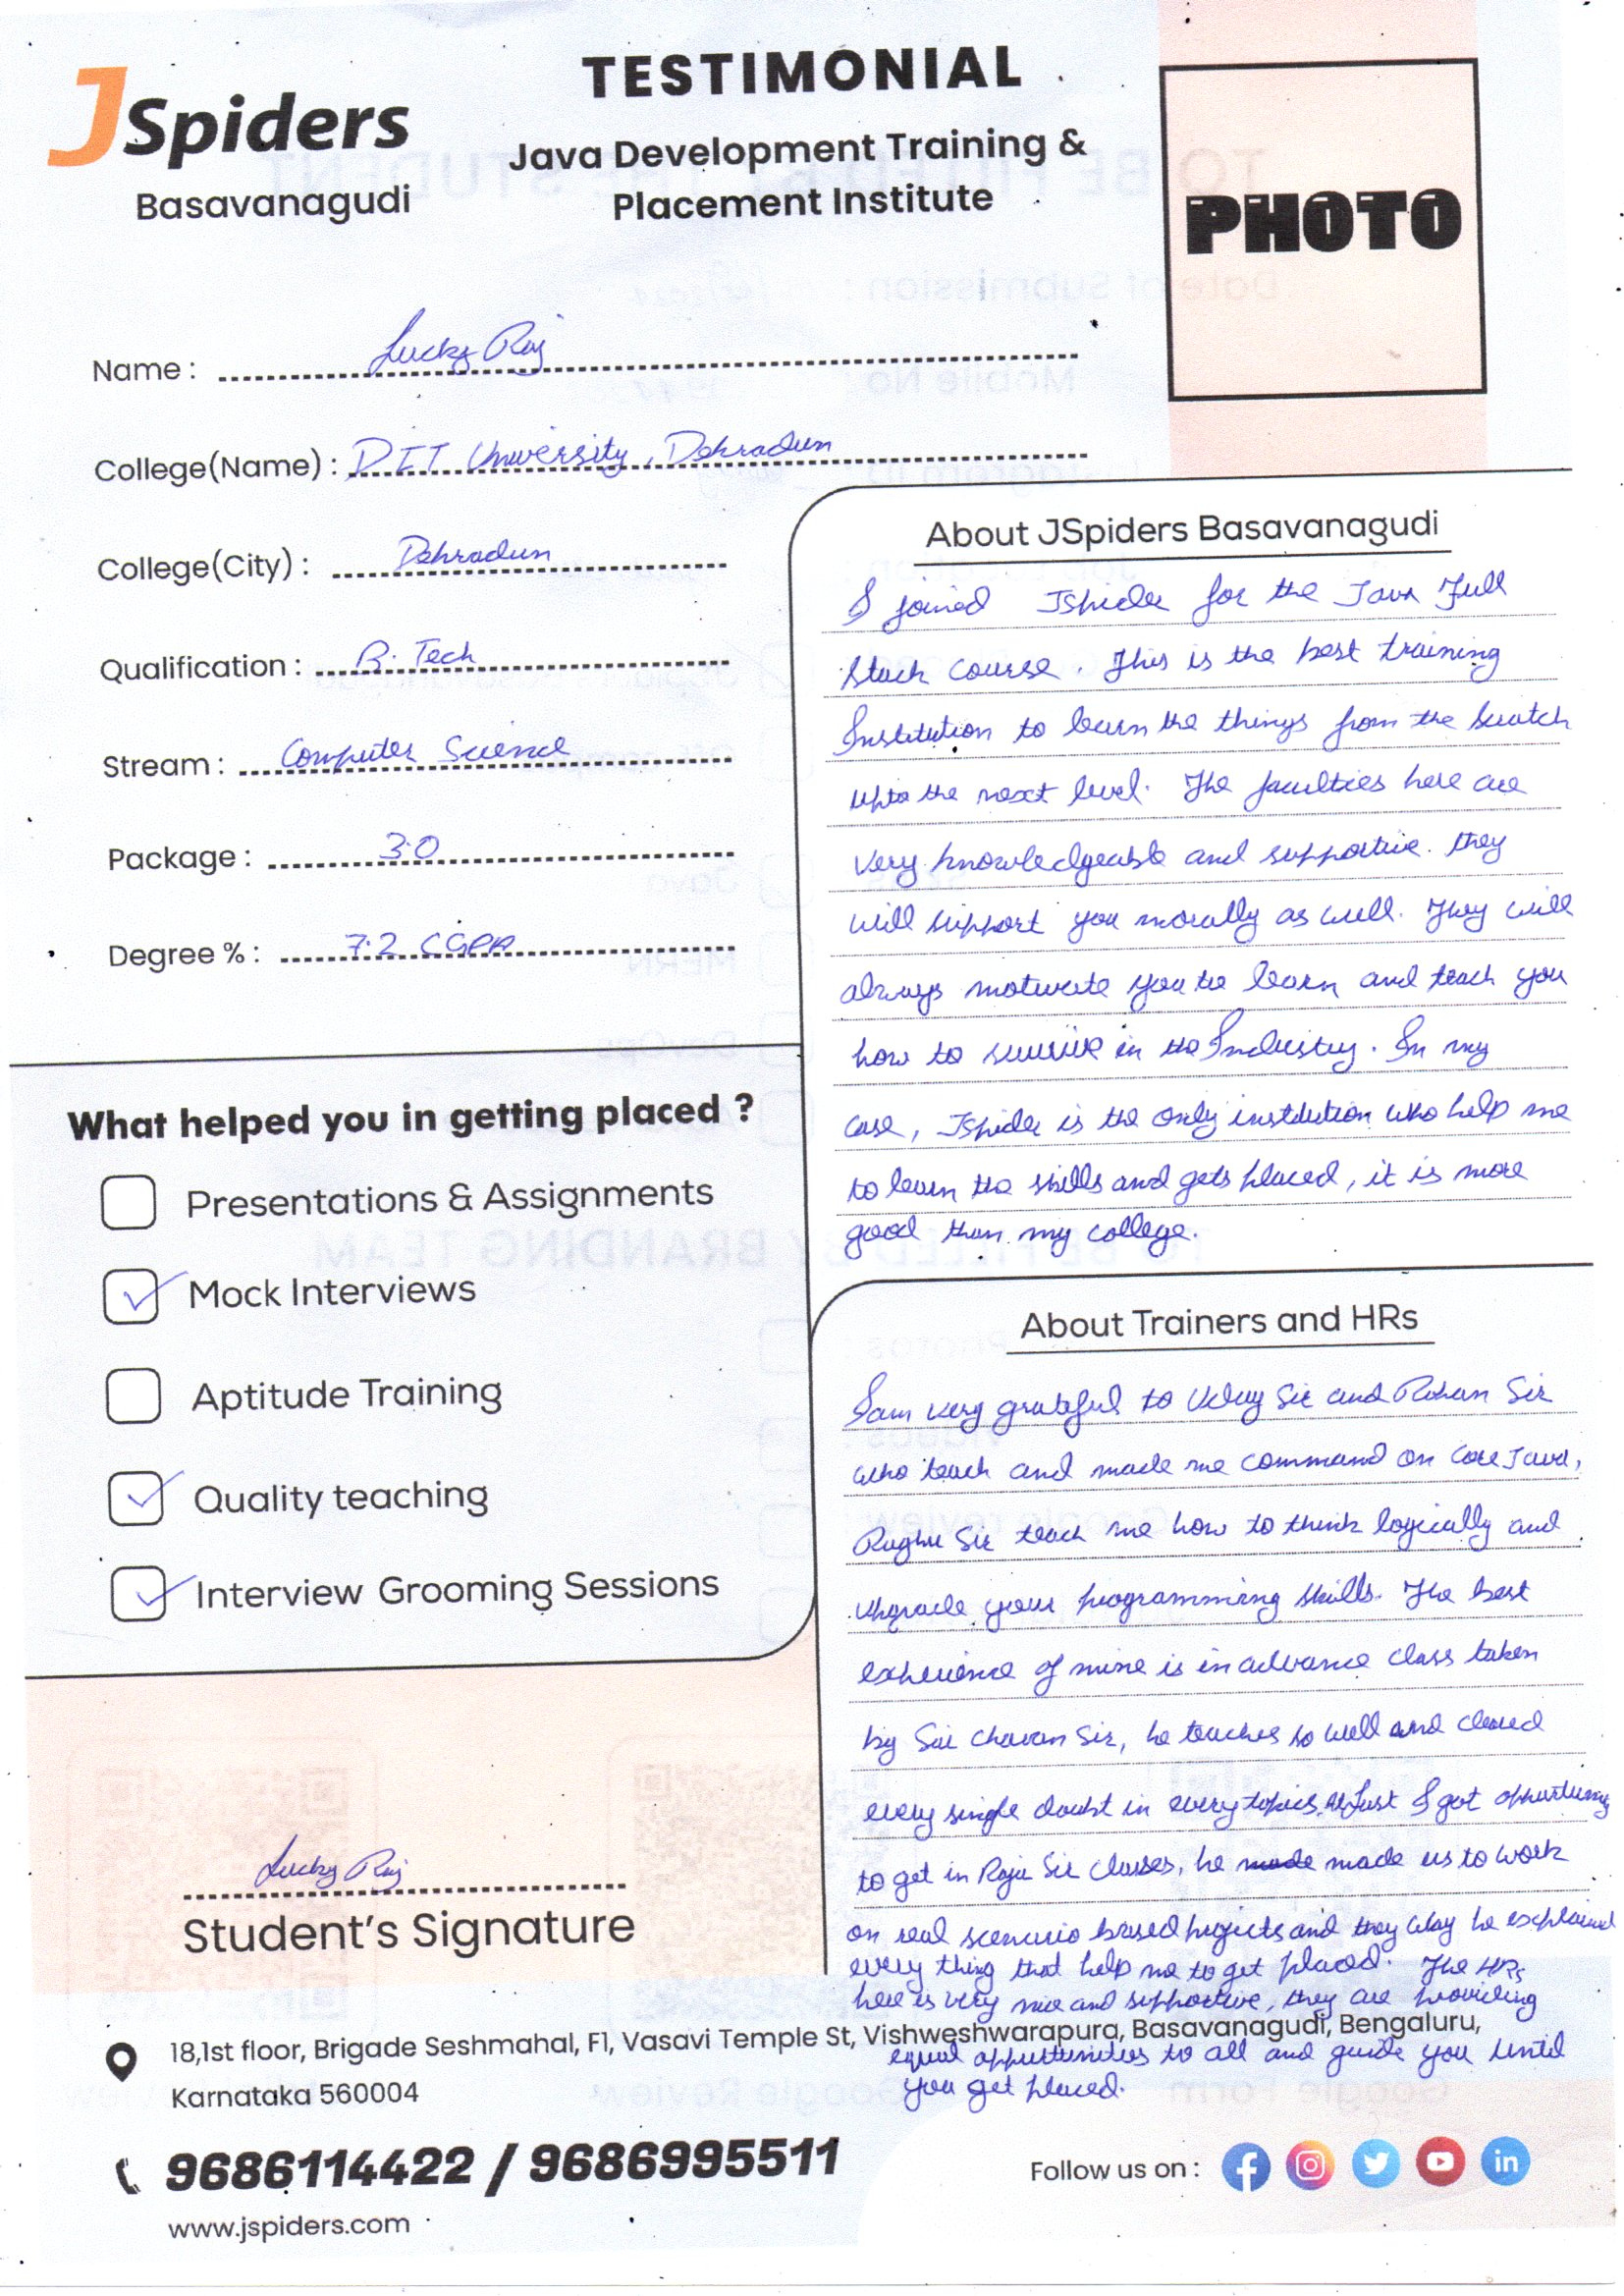 JSpiders
Basavanagudi
TESTIMONIAL
Java Development Training &
Placement Institute
PHOTO
Name : Lucky Raj
College(Name) : DIT University, Dehradun
College(City) : Dehradun
Qualification : B. Tech
Stream : Computer Science
Package : 3.0
Degree % : 7.2 CGPA
What helped you in getting placed ?
Presentations & Assignments
Mock Interviews
Aptitude Training
Quality teaching
Interview Grooming Sessions
Lucky Raj
Student's Signature
About JSpiders Basavanagudi
I joined Jspider for the Java Full
Stack course. This is the best training
Institution to learn the things from the scratch
upto the next level. The faculties here are
very knowledgeable and supportive. they
will support you morally as well. They will
always motivate you to learn and teach you
how to survive in the Industry. In my
case, Jspider is the only institution who help me
to learn the skills and gets placed, it is more
good than my college.
About Trainers and HRs
I am very grateful to Sir and Rohan Sir
who teach and made me command on Core Java,
Raghu Sir teach me how to think logically and
upgrade your programming skills. The best
experience of mine is in advance class taken
by Sir Charan Sir, he teaches so well and cleared
every single doubt in every topics. At last I got opportunity
to get in Raju Sir Classes, he made made us to work
on real scenario based projects and they way he explained
every thing that help me to get placed. The HRs
here is very nice and supportive, they are providing
equal opportunities to all and guide you until
you get placed.
18,1st floor, Brigade Seshmahal, F1, Vasavi Temple St, Vishweshwarapura, Basavanagudi, Bengaluru,
Karnataka 560004
9686114422 / 9686995511
www.jspiders.com
Follow us on :